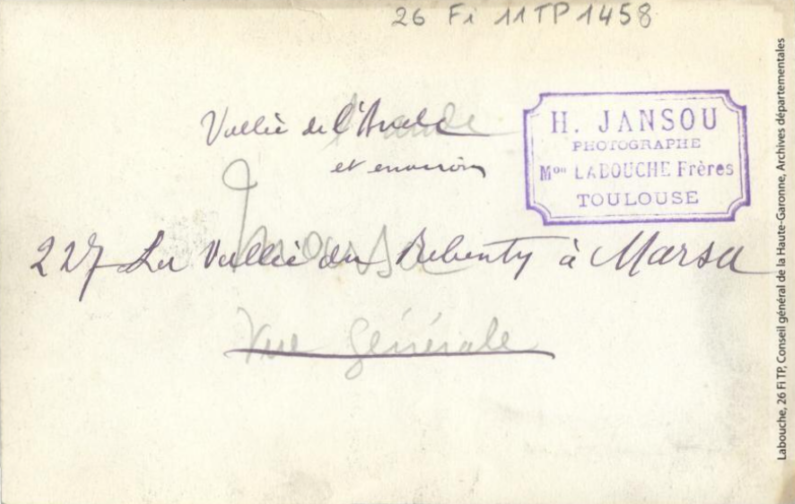 26 Fi 11TP1458
Vallée de l'Aude
et environs
H. JANSOU
PHOTOGRAPHE
Mon LABOUCHE Frères
TOULOUSE
227 La Vallée du Rebenty à Marsa
Vue Générale
Labouche, 26 Fi TP, Conseil général de la Haute-Garonne, Archives départementales